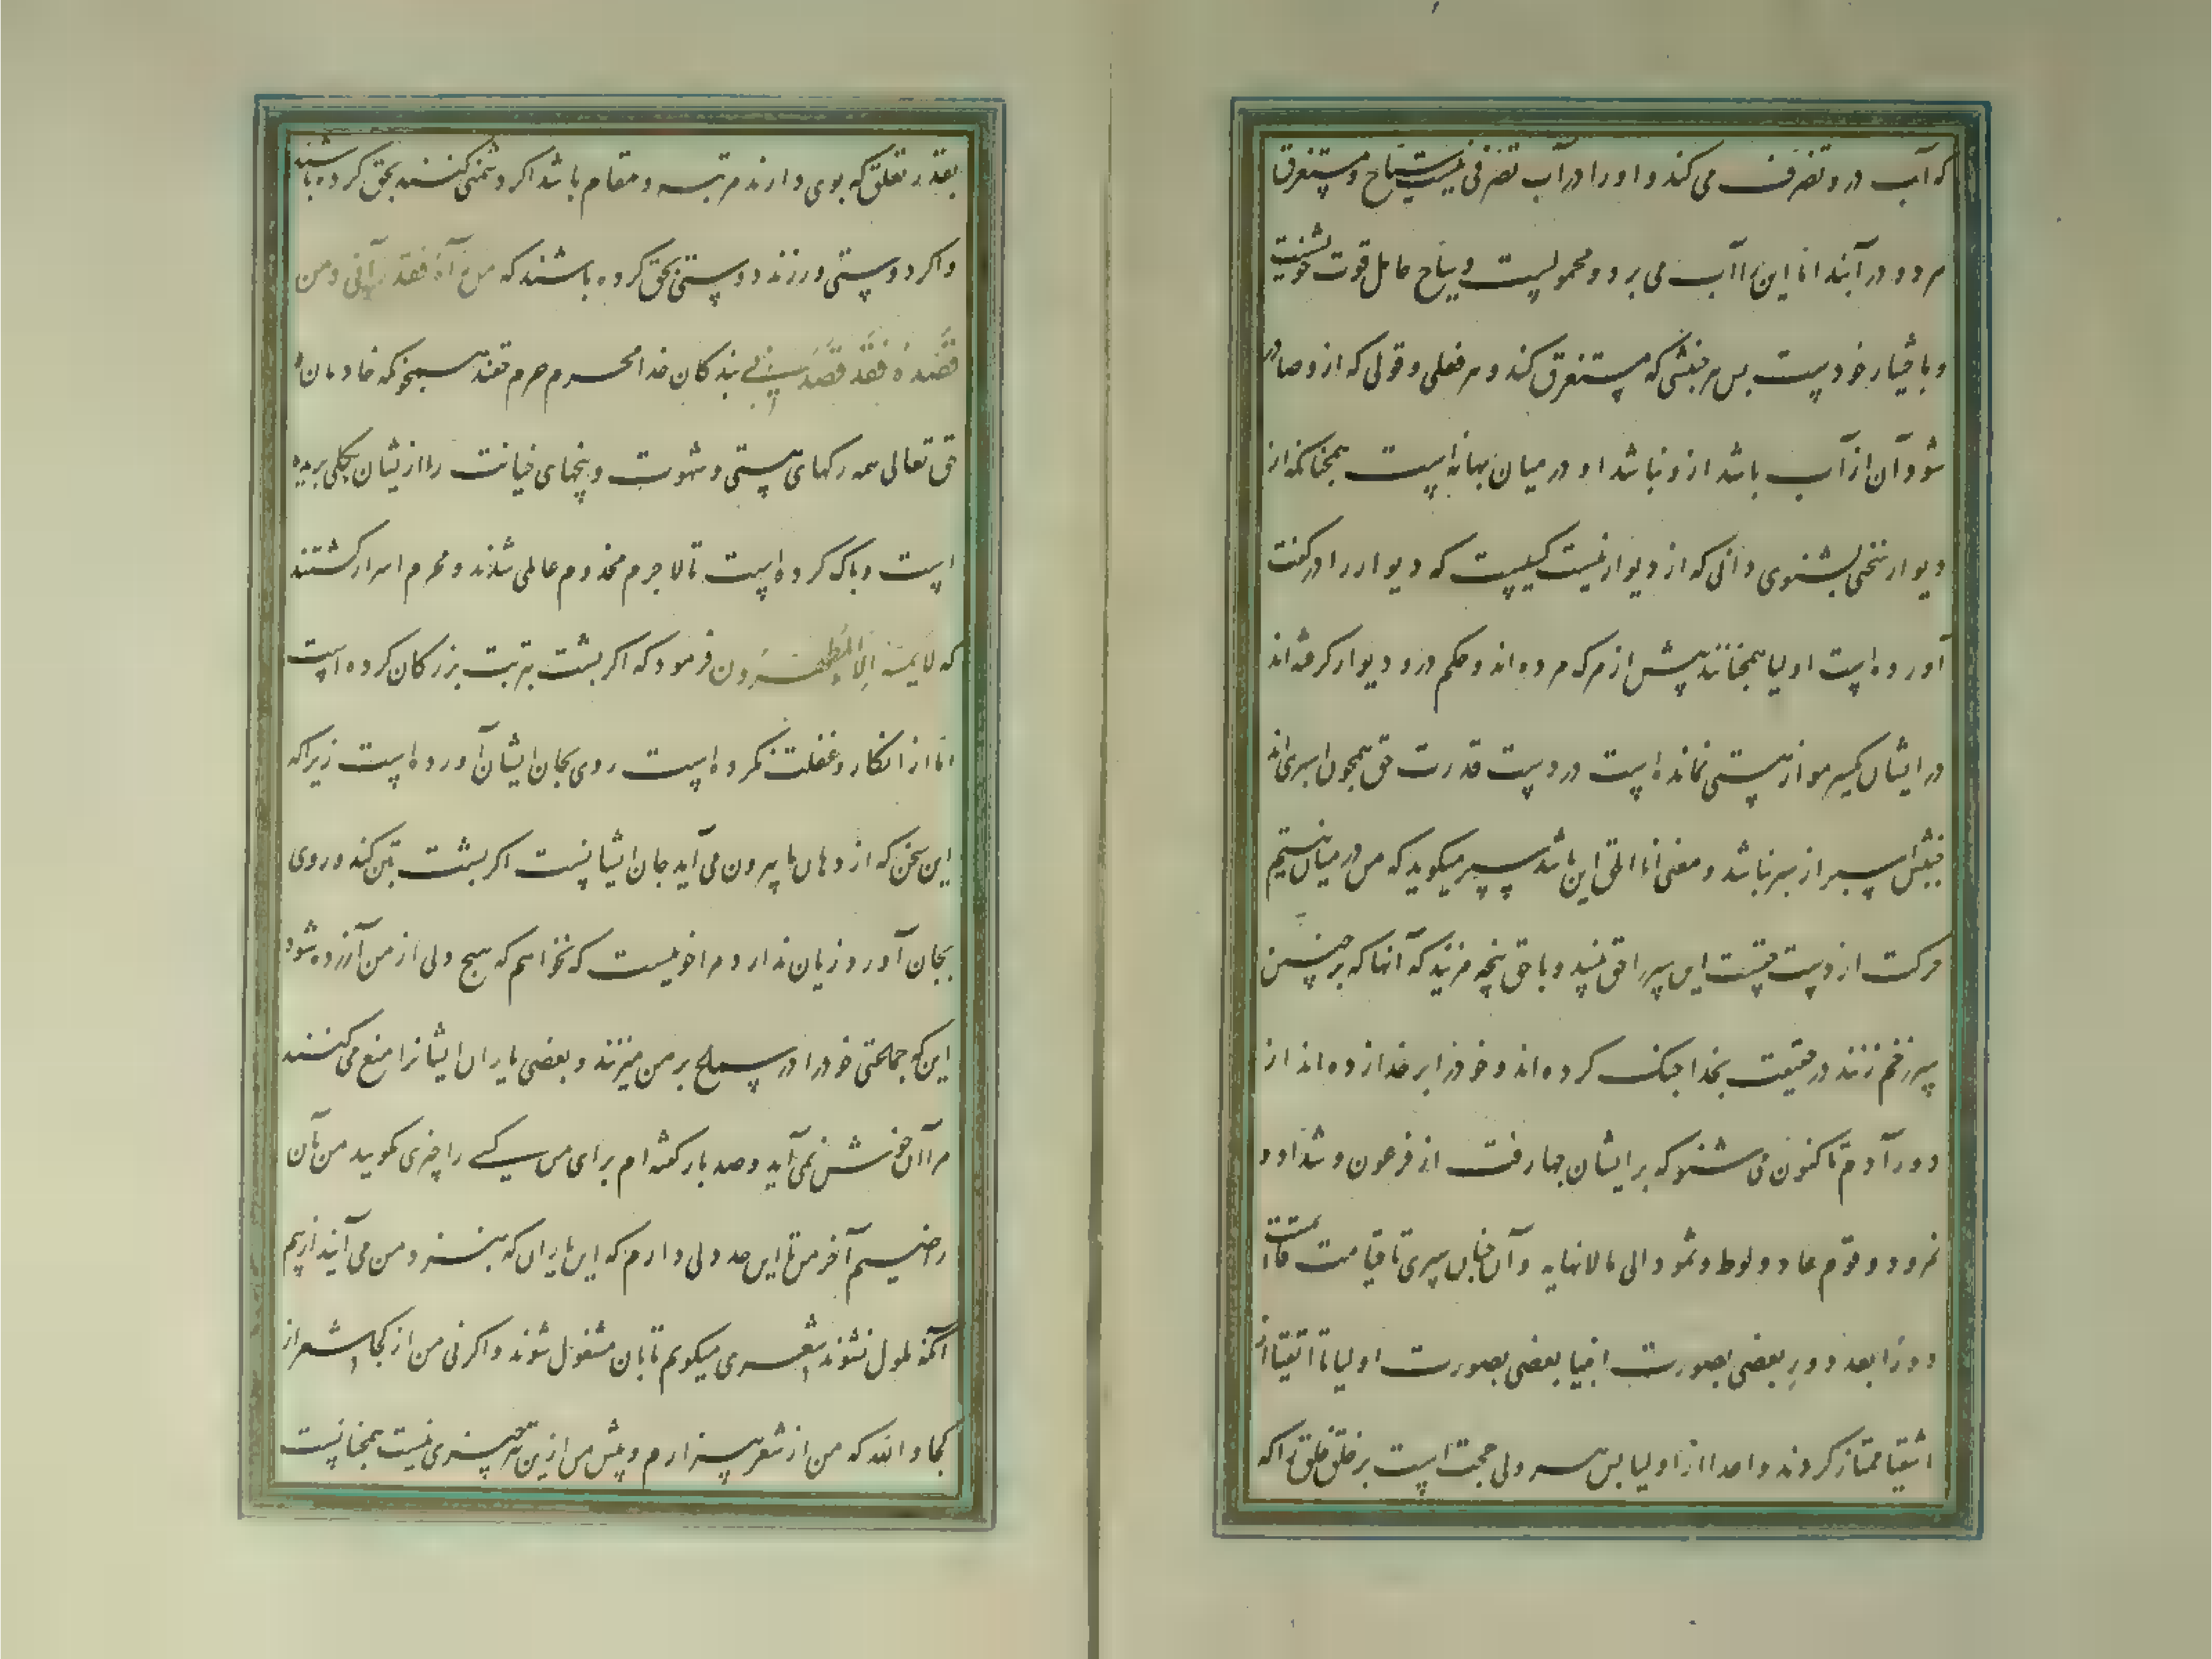 که آب درو تصرف می کند و او را در آب تصرفی نیست سباح و مستغرق
هر دو در آبند اما این را آب می برد و محمولست و سباح حامل قوت خویشست
و باختیار خودست پس هر جنبشی که مستغرق کند و هر فعلی و قولی که ازو صادر
شود آن از آب باشد ازو نباشد او در میان بهانه است همچنانکه از
دیوار سخنی بشنوی دانی که از دیوار نیست کسیست که دیوار را در گفت
آورده است اولیا همچنانند پیش از مرگ مرده اند و حکم در و دیوار گرفته اند
در ایشان یکسر مو از هستی نمانده است در دست قدرت حق همچون اسپری اند
جنبش اسپر از سپر نباشد و معنی انا الحق این باشد سپر میگوید که من در میان نیستم
حرکت از دست حقست این سپر را حق بینید و با حق پنجه مزنید که آنها که بر چنین
سپر زخم زدند در حقیقت بخدا جنگ کرده اند و خود را بر خدا زده اند از
دور آدم تا کنون می شنو که بر ایشان چها رفت از فرعون و شداد و
نمرود و قوم عاد و لوط و ثمود الی ما لانهایه و آن چنان سپری تا قیامت قائمست
دورا بعد دور بعضی بصورت انبیا بعضی بصورت اولیا تا اتقیا از
اشقیا ممتاز گردند و اعدا از اولیا پس هر ولی حجت است بر خلق خلق را که
بقدر تعلق که بوی دارند مرتبه و مقام باشد اگر دشمنی کنند بحق کرده باشند
و اگر دوستی ورزند دوستی بحق کرده باشند که من رآه فقد رآنی و من
قصده فقد قصدنی بندگان خدا محرم حرم حقند همچو که خادمان
حق تعالی همه رگهای هستی و شهوت و بیخهای خیانت را از یشان بکلی بریده
است و پاک کرده است تا لاجرم مخدوم عالمی شدند و محرم اسرار گشتند
که لا یمسه الا المطهرون فرمود که اگر پشت بتربت بزرگان کرده است
اما از انکار و غفلت نکرده است روی بجان ایشان آورده است زیرا که
این سخن که از دهان ما بیرون می آید جان ایشانست اگر پشت بتن کند و روی
بجان آورد زیان ندارد مرا خوییست که نخواهم که هیچ دلی از من آزرده شود
این که جماعتی خود را در سماع بر من میزنند و بعضی یاران ایشانرا منع می کنند
مرا آن خوش نمی آید و صد بار گفته ام برای من کسی را چیزی مگویید من بآن
راضیم آخر من تا این حد دلی دارم که این یاران که بنزد من می آیند از بیم
آنکه ملول نشوند شعری میگویم تا بآن مشغول شوند و اگر نی من از کجا شعر از
کجا و الله که من از شعر بیزارم و پیش من ازین بتر چیزی نیست همچنانست